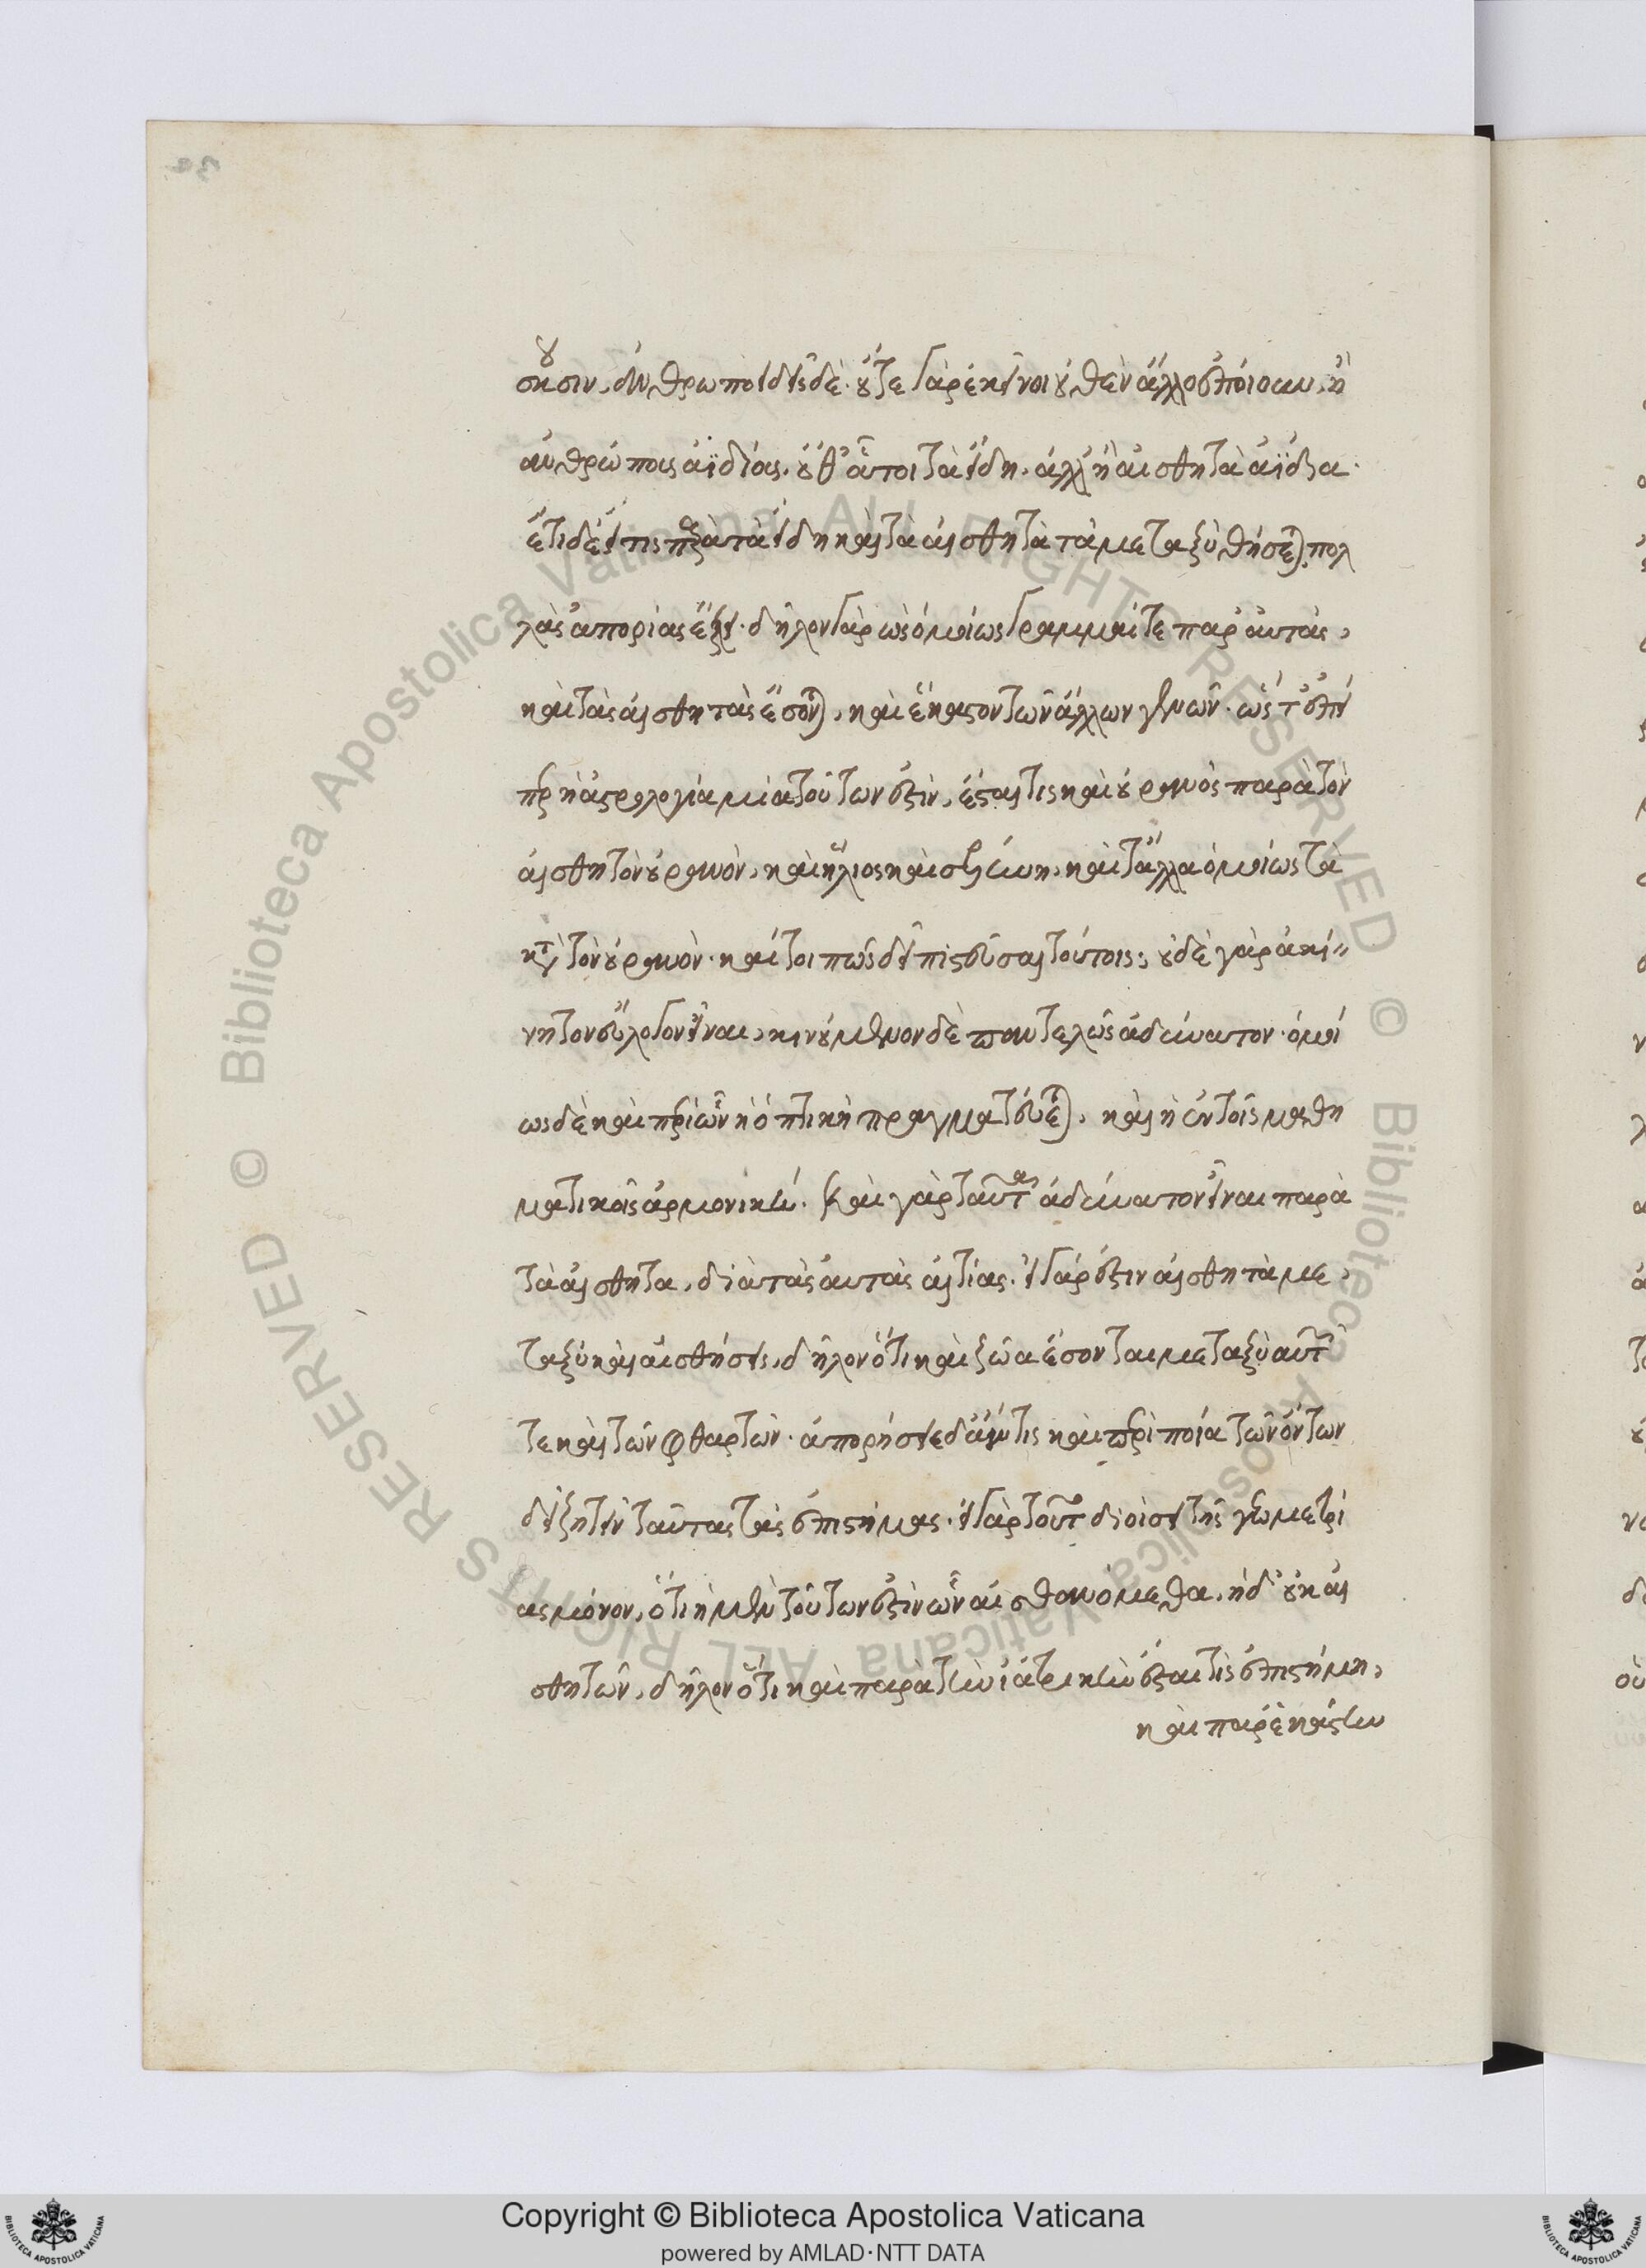 σκουσιν, ἀνθρωποειδεῖς δέ· οὔτε γὰρ ἐκεῖνοι οὐθὲν ἄλλο ἐποίουν, ἢ
ἀνθρώπους ἀϊδίους. οὔθ' οὗτοι τὰ εἴδη. ἀλλ' ἢ αἰσθητὰ ἀΐδια.
ἔτι δὲ εἴ τις παρὰ τὰ εἴδη καὶ τὰ αἰσθητὰ τὰ μεταξὺ θήσεται. πολ
λὰς ἀπορίας ἕξει· δῆλον γὰρ ὡς ὁμοίως γραμμαί τε παρ' αὐτὰς,
καὶ τὰς αἰσθητὰς ἔσονται, καὶ ἕκαστον τῶν ἄλλων γενῶν· ὥστ' ἐπεί
περ ἡ ἀστρολογία μία τούτων ἐστὶν, ἔσται τις καὶ οὐρανὸς παρὰ τὸν
αἰσθητὸν οὐρανὸν, καὶ ἥλιος καὶ σελήνη, καὶ τἄλλα ὁμοίως τὰ
κατὰ τὸν οὐρανὸν· καίτοι πῶς δεῖ πιστεῦσαι τούτοις; οὐδὲ γὰρ ἀκί
νητον εὔλογον εἶναι, κινούμενον δὲ παντελῶς ἀδύνατον· ὁμοί
ως δὲ καὶ περὶ ὧν ἡ ὀπτικὴ πραγματεύεται, καὶ ἡ ἐν τοῖς μαθη
ματικοῖς ἁρμονική. Καὶ γὰρ ταῦτα ἀδύνατον εἶναι παρὰ
τὰ αἰσθητα, διὰ τὰς αὐτὰς αἰτίας. εἰ γάρ ἐστιν αἰσθητὰ με
ταξὺ καὶ αἰσθήσεις, δῆλον ὅτι καὶ ζῶα ἔσονται μεταξὺ αὐτῶν
τε καὶ τῶν φθαρτῶν· ἀπορήσειε δ' ἄν τις καὶ περὶ ποῖα τῶν ὄντων
δεῖ ζητεῖν ταύτας τὰς ἐπιστήμας. εἰ γὰρ τούτω διοίσει τῆς γεωμετρί
ας μόνον, ὅτι ἡ μὲν τούτων ἐστὶν ὧν αἰσθανόμεθα, ἡ δ' οὐκ αἰ
σθητῶν, δῆλον ὅτι καὶ παρὰ τὴν ἰατρικὴν ἔσται τὶς ἐπιστήμη,
καὶ παρ' ἑκάστην
Copyright © Biblioteca Apostolica Vaticana
powered by AMLAD·NTT DATA